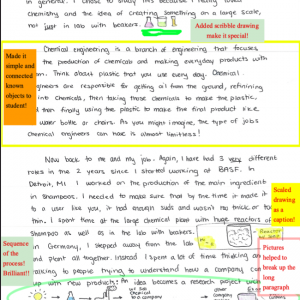 in general. I chose to study this because I really loved
chemistry and the idea of creating something on a large scale,
not just in lab with beakers.
Added scribble drawing
make it special!
Made it
simple and
connected
known
objects to
student!
Chemical engineering is a branch of engineering that focuses
the production of chemicals and making everyday products with
. Think about plastic that you use every day. Chemical
gineers are responsible for getting oil from the ground, refinining
into chemicals, then taking those chemicals to make the plastic.
d then finally using the plastic to make the final product like
water bottle or chairs. As you might imagine, the type of jobs
Chemical engineers can have is almost limitless!
Now back to me and my job. Again, I have had 3 very different
roles in the 2 years since I started working at BASF. In
Detroit, MI I worked on the production of the main ingredient
in Shampoos. I needed to make sure that by the time it made it
to a user like you, it had enough suds and wasn't too thick or too
thin. I spent time at the large chemical plant with huge reactors of
Shampoo as well as in the lab with beakers.
Scaled
drawing as
a caption!
Reactor
Sequence
of the
process!
Brilliant!!
in Germany, I stepped away from the lab
and plant all together. Instead I spent a lot of time thinking an
talking to people trying to understand how a company can
up with new products! An idea becomes a research project
Pictures
helped to
break up the
long
paragraph
Sell
Chemical
to a company
other
company